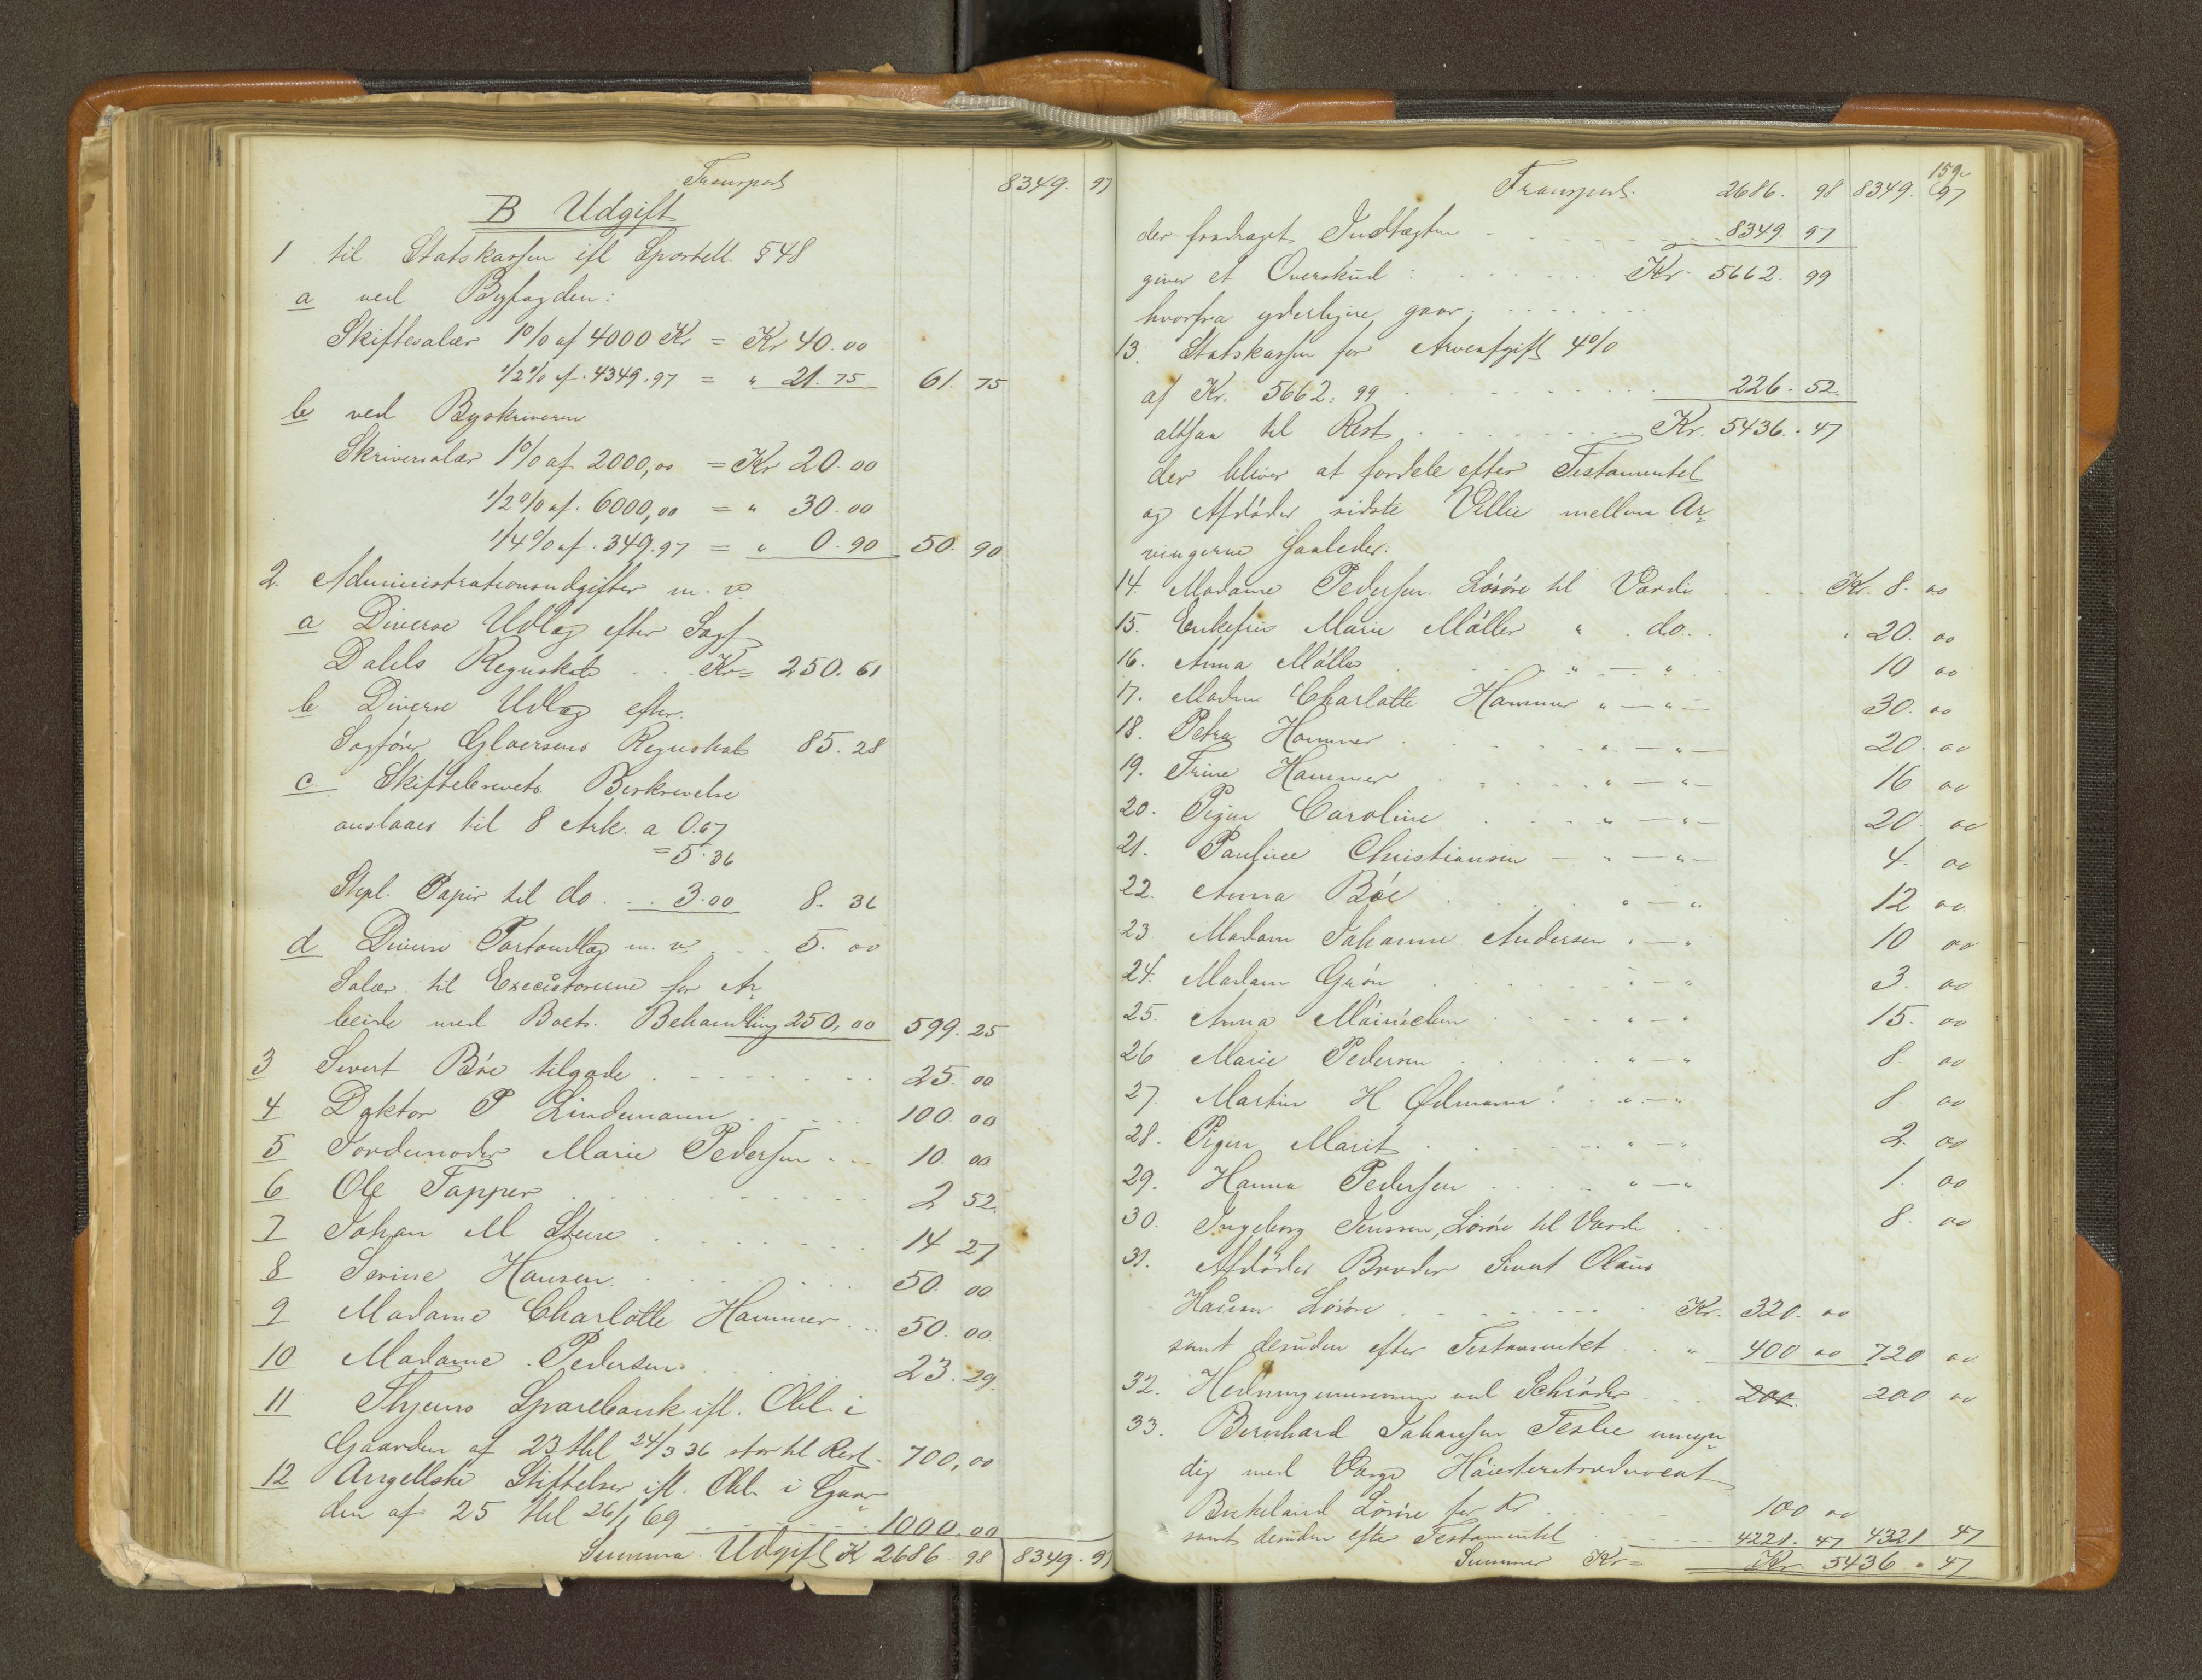 Transport 8349. 97
B Udgift
1 til Statskassen ifl Sportell. § 48
a ved Byfogden:
Skiftesalær 1% af 4000 Kr = Kr 40.00
1/2% af. 4349.97 = " 21.75 61. 75
b ved Byskriveren
Skriversalær 1% af 2000,00 = Kr 20.00
1/2% af. 6000,00 = " 30.00
1/4% af. 349.97 = " 0.90 50. 90
2. Administrationsudgifter m. v.
a Diverse Udlæg efter Sagf
Dahls Regnskab . . Kr = 250. 61
b Diverse Udlæg efter.
Sagfører Gløersens Regnskab 85. 28
c Skiftebrevets Beskrivelse
anslaaes til 8 Ark. a 0.67
= 5.36
Stpl. Papir til do . . . 3.00 8. 36
d Diverse Portoudlæg m. v. . . 5. 00
Salær til Executorerne for Ar
beide med Boets Behandling 250,00 599. 25
3 Sivert Böe tilgode 25. 00
4 Doktor P Lindemann 100. 00
5 Jordemoder Marie Pedersen 10. 00
6 Ole Tapper 2 52.
7 Johan M Stene 14 27
8 Serine Hansen 50. 00
9 Madame Charlotte Hammer 50. 00
10 Madame Pedersen 23. 29.
11 Thjems Sparebank ifl. Obl. i
Gaarden af 23 thl 24/3 36 stor til Rest 700,00
12 Angellske Stiftelser ifl. Obl. i Gaar
den af 25 thl 26/1 69 1000.00
Summa Udgift K 2686. 98 8349. 97
159.
Transport. 2686. 98 8349. 97
der fradraget Indtægten 8349. 97
giver et Overskud : Kr. 5662. 99
hvorfra yderligere gaar:
13. Statskassen for Arveafgift 4%
af Kr. 5662. 99 226. 52.
altsaa til Rest Kr. 5436. 47
der bliver at fordele efter Testamentet
og Afdödes sidste Villie mellem Ar
vingerne saaledes:
14. Madame Pedersen Lösöre til Værdi Kr. 8. 00
15. Enkefru Marie Möller " do. " 20. 00
16. Anna Möller " — " 10 00
17. Madam Charlotte Hammer " — " — 30. 00
18. Petra Hammer " — " — 20. 00
19. Trine Hammer " — " — 16 00
20. Pigen Caroline " — " — 20 00
21. Pauline Christiansen " — " — 4. 00
22. Anna Böe " — " 12 00
23 Madam Johanne Andersen " — " 10 00
24. Madam Grön " — " 3. 00
25. Anna " — " 15. 00
26 Marie Pedersen " — " 8. 00
27. Martin H Ødmann " — " 8. 00
28. Pigen Marit " — " 2. 00
29. Hanna Pedersen " — " 1. 00
30. Ingeborg Jenssen, Lösöre til Værdi 8. 00
31. Afdödes Broder Sivert Olaus
Hansen Lösöre Kr. 320. 00
samt desuden efter Testamentet " 400 00 720 00
32. ved Schröder 200 200 00
33. Bernhard Johansen Teslie umyn
dig med Værge Höiesteretsadvocat
Birkeland Lösöre for Kr 100 00
samt desuden efter Testamentet 4221. 47 4321 47
Summer Kr = Kr 5436. 47